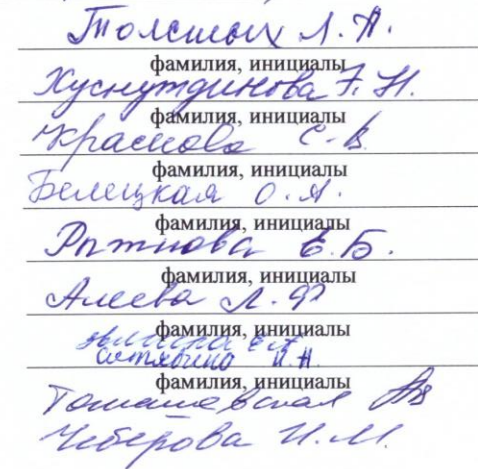 Толстых Л. А.
фамилия, инициалы
Хуснутдинова Г. Н.
фамилия, инициалы
Краснова С. В.
фамилия, инициалы
Белецкая О. А.
фамилия, инициалы
Рытнова Е. Б.
фамилия, инициалы
Алеева Л. Ф
фамилия, инициалы
И. Н.
фамилия, инициалы
Томашевская
Чеберова И. М.